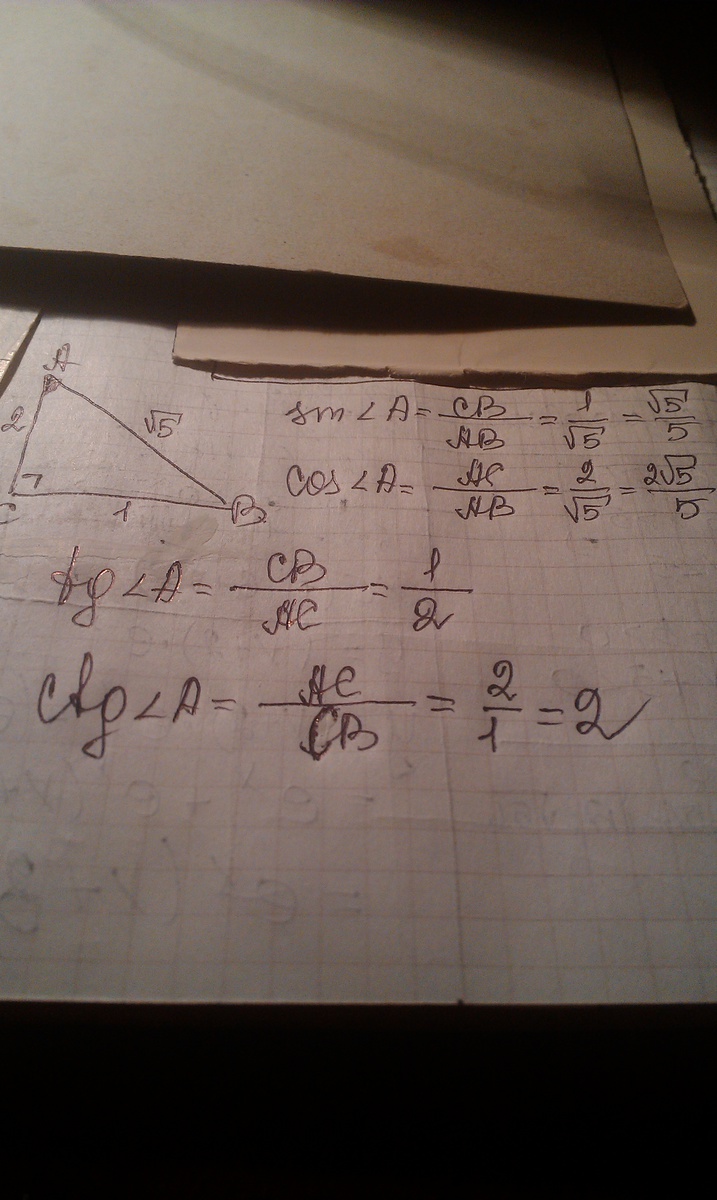 A
2
√5
C
1
B
sin ∠A = CB/AB = 1/√5 = √5/5
cos ∠A = AC/AB = 2/√5 = 2√5/5
tg ∠A = CB/AC = 1/2
ctg ∠A = AC/CB = 2/1 = 2